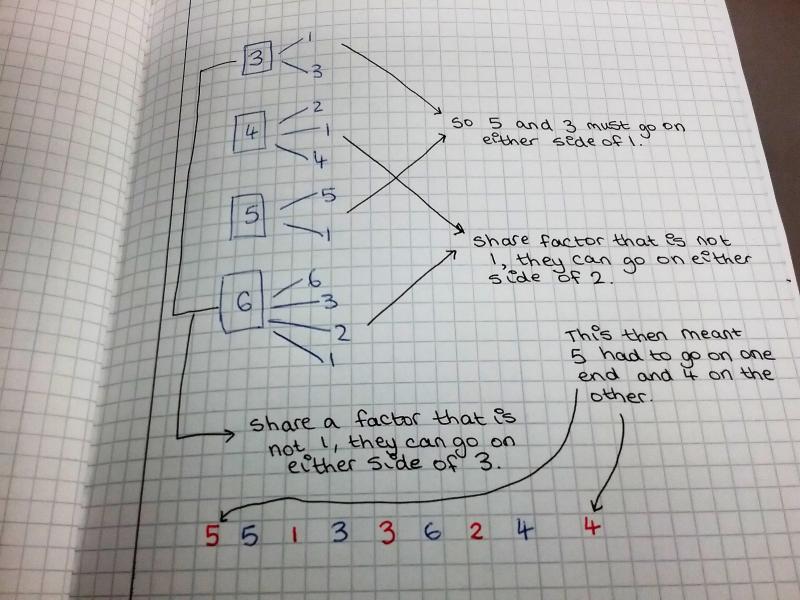 3 1
3
4 2
1
4
5 5
1
6 6
3
2
1
So 5 and 3 must go on
either side of 1.
share factor that is not
1, they can go on either
side of 2.
This then meant
5 had to go on one
end and 4 on the
other.
share a factor that is
not 1, they can go on
either side of 3.
5 5 1 3 3 6 2 4 4